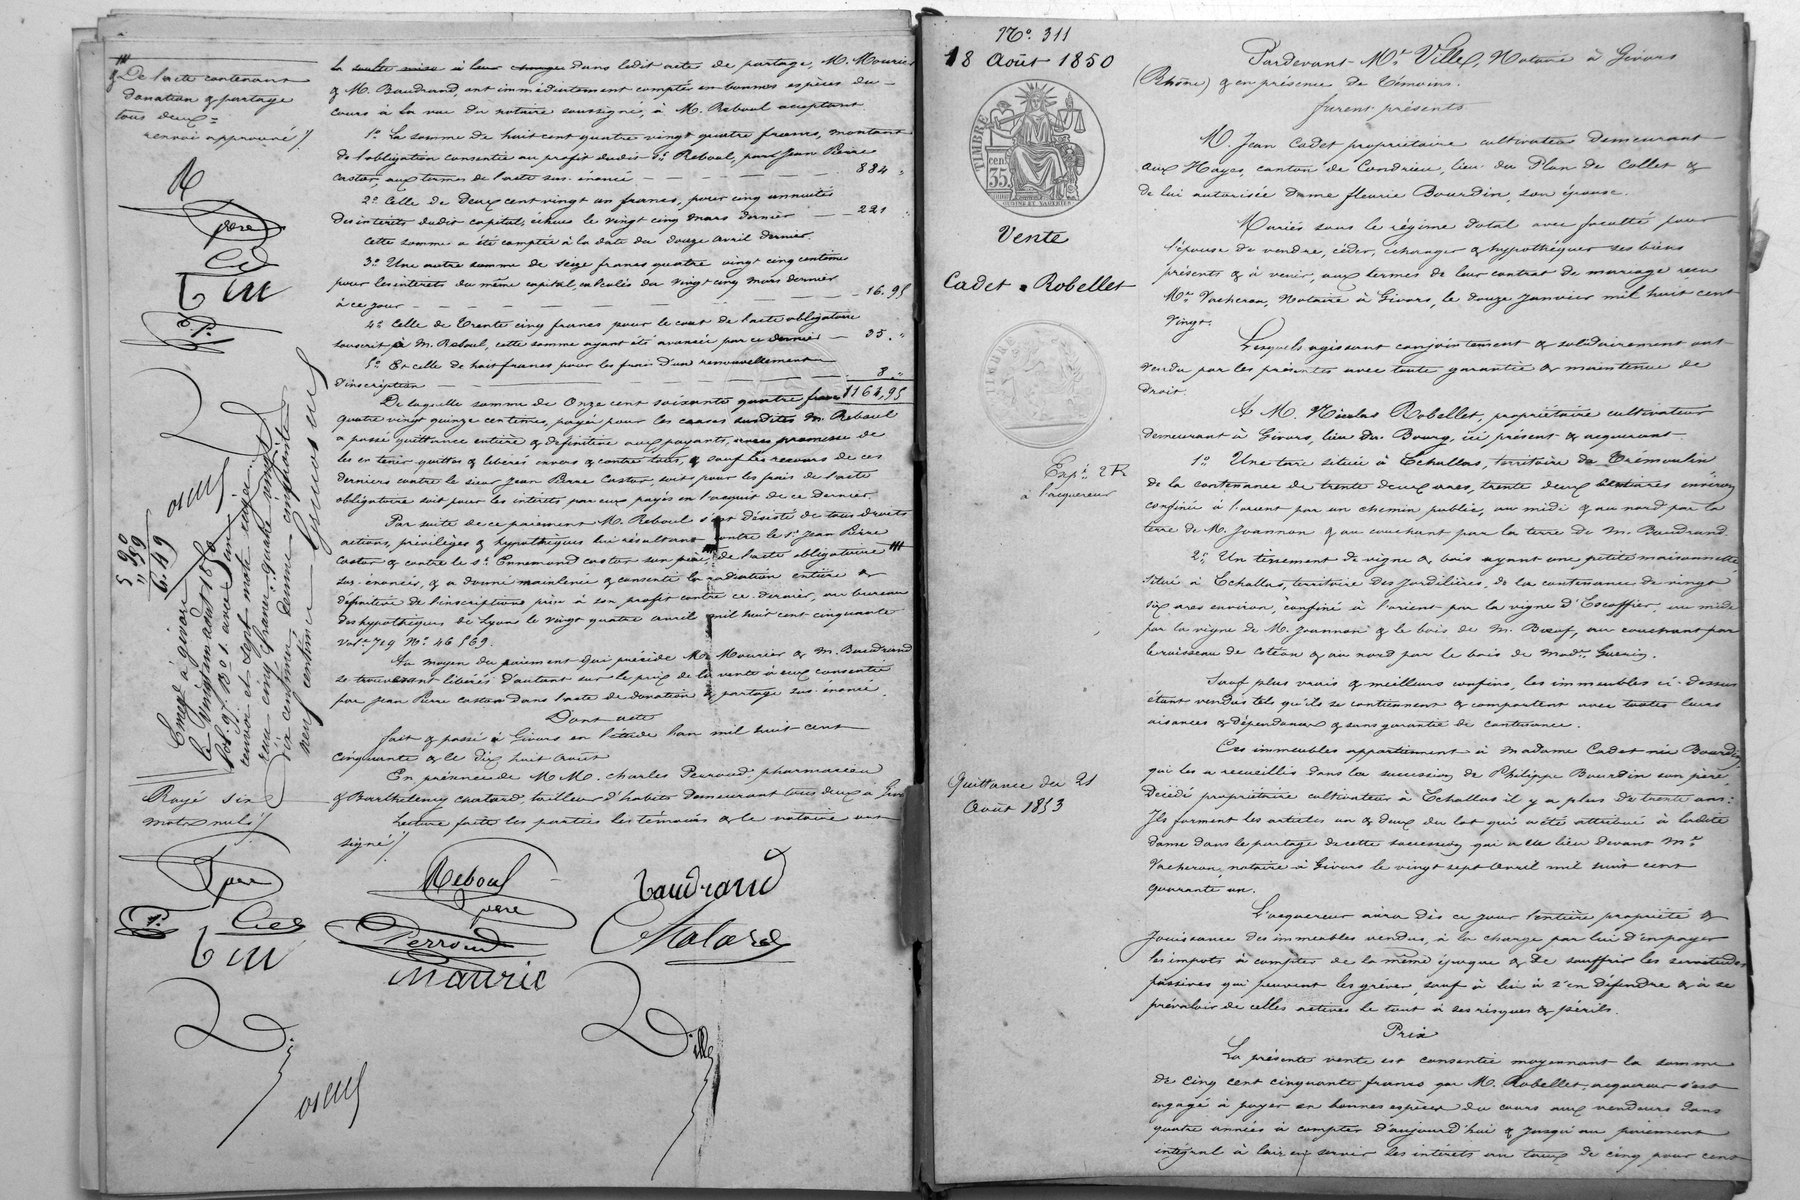 De l'acte contenant
donation & partage
tous deux
renvoi approuvé
père
Tin
la soulte mise à leur charge dans ledit acte de partage, M. Mourier
& M. Baudrand, ont immédiatement compté en bonnes espèces du
cours à la vue du notaire soussigné, à M. Reboul acceptant
1° La somme de huit cent quatre vingt quatre francs, montant
de l'obligation consentie au profit dudit Sr. Reboul, par Jean Pierre
Castor, aux termes de l'acte sus-énoncé 884 "
2° Celle de deux cent vingt un francs, pour cinq annuités
des intérêts dudit capital, échues le vingt cinq mars dernier 221
Cette somme a été comptée à la date du douze avril dernier.
3° Une autre somme de seize francs quatre vingt quinze centimes
pour les intérêts du même capital, calculés du vingt cinq mars dernier
à ce jour 16.95
4° Celle de trente cinq francs pour le coût de l'acte obligatoire
souscrit à M. Reboul, cette somme ayant été avancée par ce dernier 35 "
5° Et celle de huit francs pour les frais d'un renouvellement
d'inscription 8 "
1164,95
De laquelle somme de Onze cent soixante quatre francs
quatre vingt quinze centimes, payée pour les causes susdites M. Reboul
a passé quittance entière & définitive aux payants, avec promesse de
les en tenir quittes & libérés envers & contre tous, & sauf les recours de ces
derniers contre le sieur Jean Pierre Castor, soit pour les frais de l'acte
obligatoire soit pour les intérêts par eux payés en l'acquit de ce dernier.
Par suite de ce paiement M. Reboul s'est désisté de tous droits
actions, privilèges & hypothèques lui résultant contre le Sr. Jean Pierre
Castor & contre le Sr. Ennemond Castor son père, de l'acte obligatoire
sus-énoncé, & a donné mainlevée & consenti la radiation entière &
définitive de l'inscription prise à son profit contre ce dernier, au bureau
des hypothèques de Lyon le vingt quatre avril mil huit cent cinquante
Vol. 719 N° 46569.
Au moyen du paiement qui précède M. Mourier & M. Baudrand
se trouvent libérés d'autant sur le prix de la vente à eux consentie
par Jean Pierre Castor dans l'acte de donation & partage sus-énoncé.
Dont acte
fait & passé à Givors en l'étude l'an mil huit cent
cinquante & le dix huit août
En présence de M.M. Charles Perroud pharmacien
& Barthelemy Chatard, tailleur d'habits demeurant tous deux à Givors
Lecture faite les parties les témoins & le notaire ont
signé
5 90
" 59
6.49
Enreg. à Givors
le vingt un août 1850
renvoi et sept mots rayés
reçu cinq francs quatre vingt
dix centimes, décime cinquante
neuf centimes
Rayé six
mots nuls
père
Tin
Reboul
père
Baudrand
Perroud
Chatard
Maurie
Ville
N° 311
18 Août 1850
TIMBRE
35 cen.
Vente
Cadet = Robellet
TIMBRE
Expé. 2 R
à l'acquéreur
Quittance du 21
Août 1853
Pardevant Me. Ville, Notaire à Givors
(Rhône) & en présence de témoins.
furent présents
M. Jean Cadet propriétaire cultivateur demeurant
aux Hayes, canton de Condrieu, lieu du Plan de Collet &
de lui autorisée dame fleurie Bourdin, son épouse.
Mariés sous le régime dotal avec faculté pour
l'épouse de vendre, céder, échanger & hypothéquer ses biens
présents & à venir, aux termes de leur contrat de mariage reçu
Me. Vacheron, Notaire à Givors, le douze Janvier mil huit cent
vingt.
Lesquels agissant conjointement & solidairement ont
vendu par les présentes avec toute garantie & maintenue de
droit
A M. Nicolas Robellet, propriétaire cultivateur
demeurant à Givors, lieu du Bourg, ici présent & acquérant
1° Une terre située à Echallas, territoire de Trémoulin
de la contenance de trente deux ares, trente deux centiares environ
confinée à l'orient par un chemin public, au midi & au nord par la
terre de M. Joannon & au couchant par la terre de M. Baudrand.
2° Un tènement de vigne & bois ayant une petite maisonnette
situé à Echallas, territoire des Jordilières, de la contenance de vingt
six ares environ, confiné à l'orient par la vigne d'Escoffier, au midi
par la vigne de M. Joannon & le bois de M. Bœuf, au couchant par
le ruisseau de Cotéon & au nord par le bois de Made. Guerin.
Sauf plus vrais & meilleurs confins, les immeubles ci-dessus
étant vendus tels qu'ils se contiennent & comportent avec toutes leurs
aisances & dépendances & sans garantie de contenance.
Ces immeubles appartiennent à Madame Cadet née Bourdin,
qui les a recueillis dans la succession de Philippe Bourdin son père,
décédé propriétaire cultivateur à Echallas il y a plus de trente ans.
Ils forment les articles un & deux du lot qui a été attribué à ladite
dame dans le partage de cette succession qui a eu lieu devant Me.
Vacheron, notaire à Givors le vingt sept avril mil huit cent
quarante un.
L'acquéreur aura dès ce jour l'entière propriété &
Jouissance des immeubles vendus, à la charge par lui d'en payer
les impôts à compter de la même époque & de souffrir les servitudes
passives qui peuvent les gréver, sauf à lui à s'en défendre & à se
prévaloir de celles actives le tout à ses risques & périls.
Prix
La présente vente est consentie moyennant la somme
de cinq cent cinquante francs que M. Robellet, acquéreur s'est
engagé à payer en bonnes espèces du cours aux vendeurs dans
quatre années à compter d'aujourd'hui & jusqu'au paiement
intégral à leur en servir les intérêts au taux de cinq pour cent